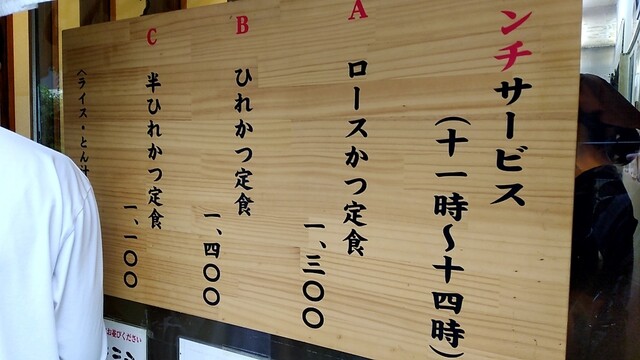 ンチサービス
（十一時〜十四時）
A ロースかつ定食 一、三〇〇
B ひれかつ定食 一、四〇〇
C 半ひれかつ定食 一、一〇〇
〈ライス・とん汁
お並びください